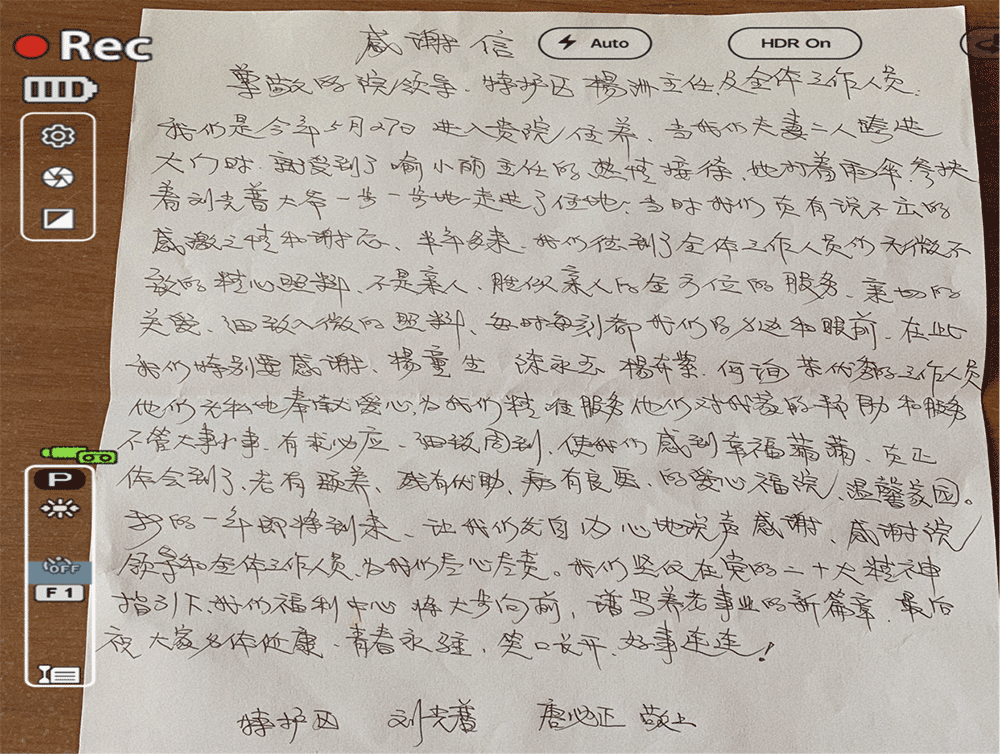 Rec
Auto
HDR On
P
OFF
F 1
感谢信
尊敬的院领导、特护区杨洲主任及全体工作人员:
我们是今年5月27日进入贵院住养、当我们夫妻二人跨进
大门时、就受到了喻小丽主任的热情接待、她打着雨伞、参扶
着刘光蕃大爷一步一步地走进了住地、当时我们真有说不出的
感激之情和谢忘、半年多来、我们体到了全体工作人员们无微不
致的精心照料、不是亲人、胜似亲人的全方位的服务、亲切的
关爱、细致入微的照料、每时每刻都我们的身边和眼前、在此
我们特别要感谢、杨童生 涂永玉 杨东紫、何询等优秀的工作人员
他们无私地奉献爱心、为我们精准服务他们对我家的帮助和服务
不管大事小事、有求必应、细致周到、使我们感到幸福满满、真正
体会到了、老有颐养、残有优助、病有良医、的爱心福院、温馨家园。
新的一年即将到来、让我们发自内心地说声感谢、感谢院
领导和全体工作人员、为我们尽心尽责。我们坚信在党的二十大精神
指引下、我们福利中心将大步向前,谱写养老事业的新篇章、最后
祝大家身体健康、青春永驻,笑口长开、好事连连!
特护区 刘光蕃 唐必正 敬上